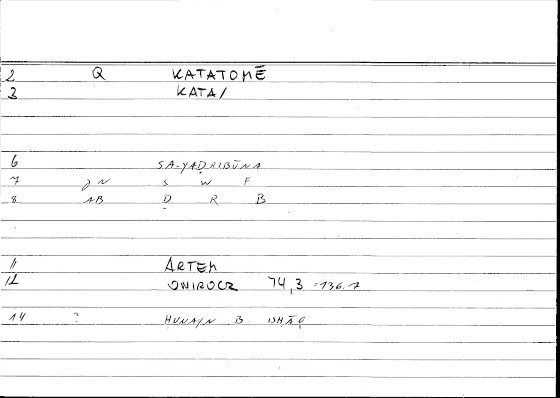 2 Q KATATOMĒ
3 KATA/
6 SA-YAḌRIBŪNA
7 JN S W F
8 AB Ḍ R B
11 ARTEM
12 ONIROCR 74,3 = 136.7
14 ? HUNAJN B ISHĀQ